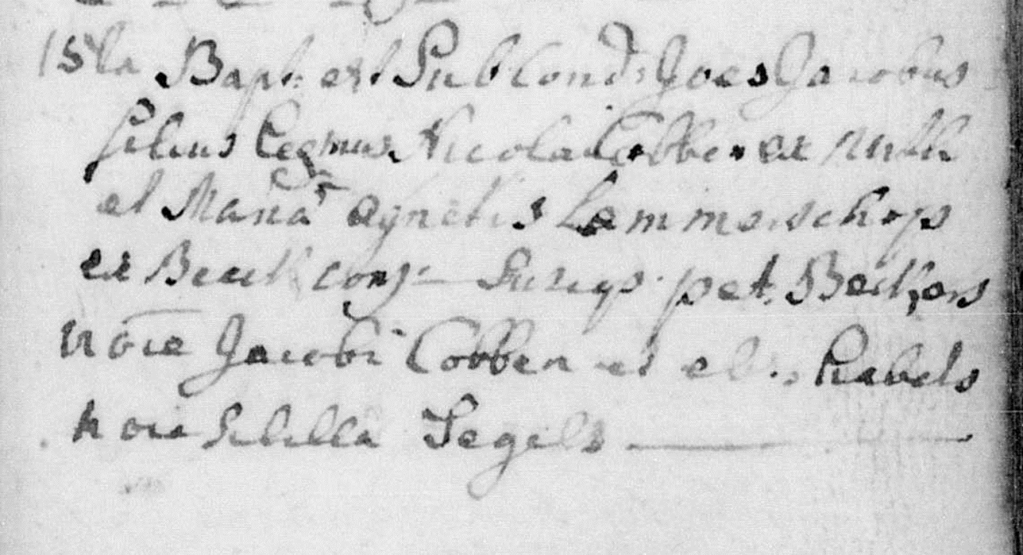 15ta Bapt: est Sub Cond: Joes Jacobus
filius legmus Nicolai Cobben ex Nuth
et Maria Agnetis Lemmerschops
ex Beeck conj: Suscep. pet. Beckers
noie Jacobi Cobben et el. Habets
noie Sibilla Segels